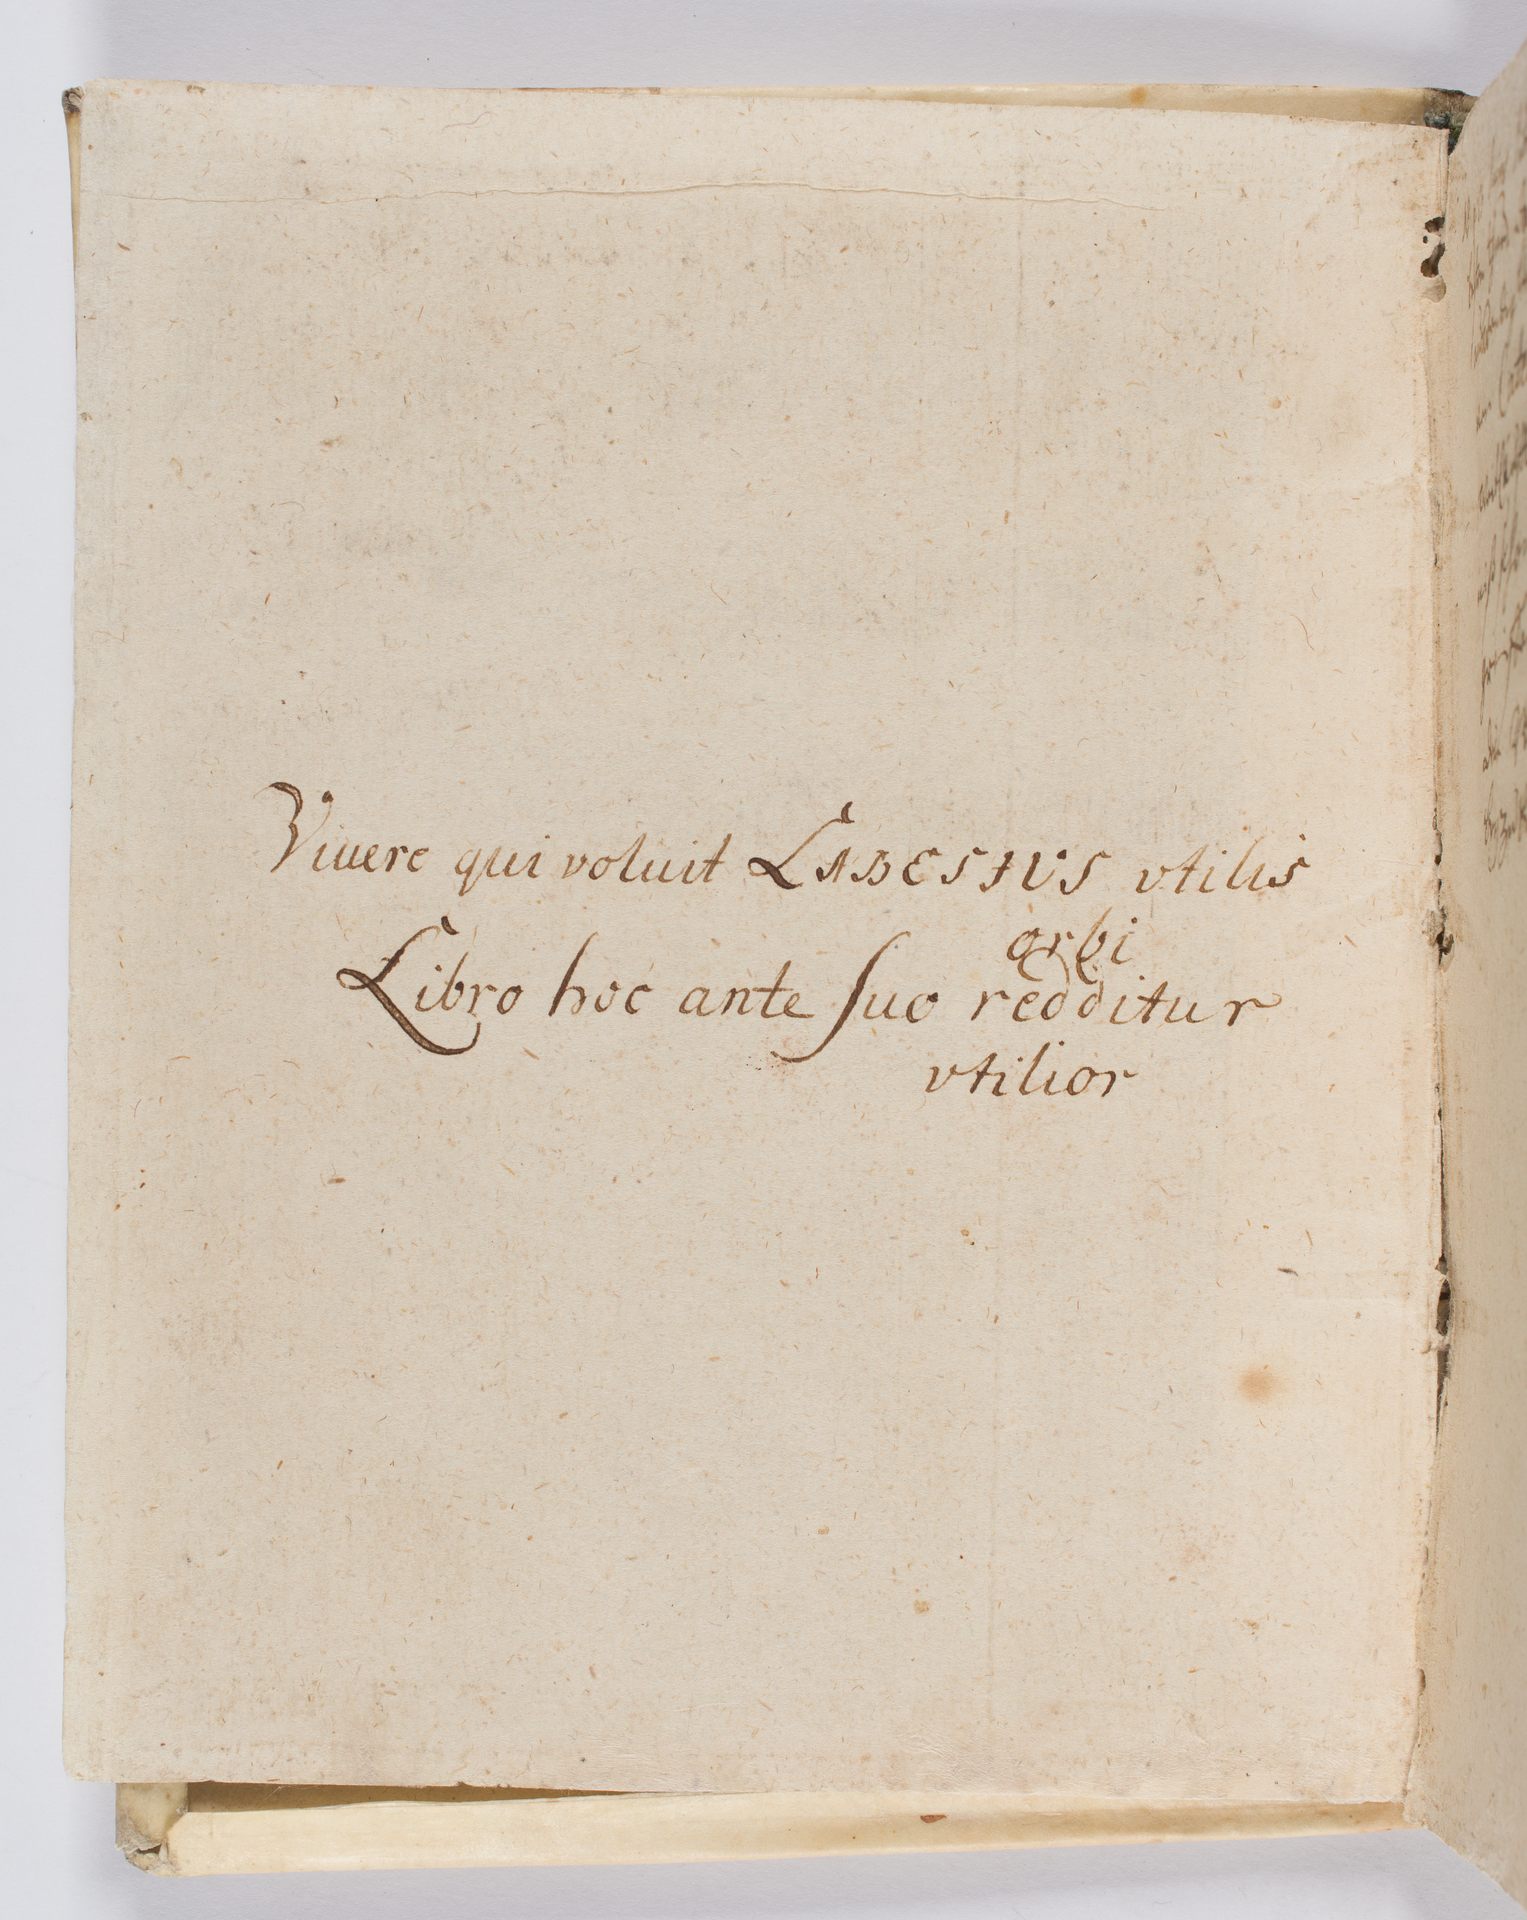 Viuere qui voluit LABESIVS vtilis
orbi
Libro hoc ante suo redditur
vtilior